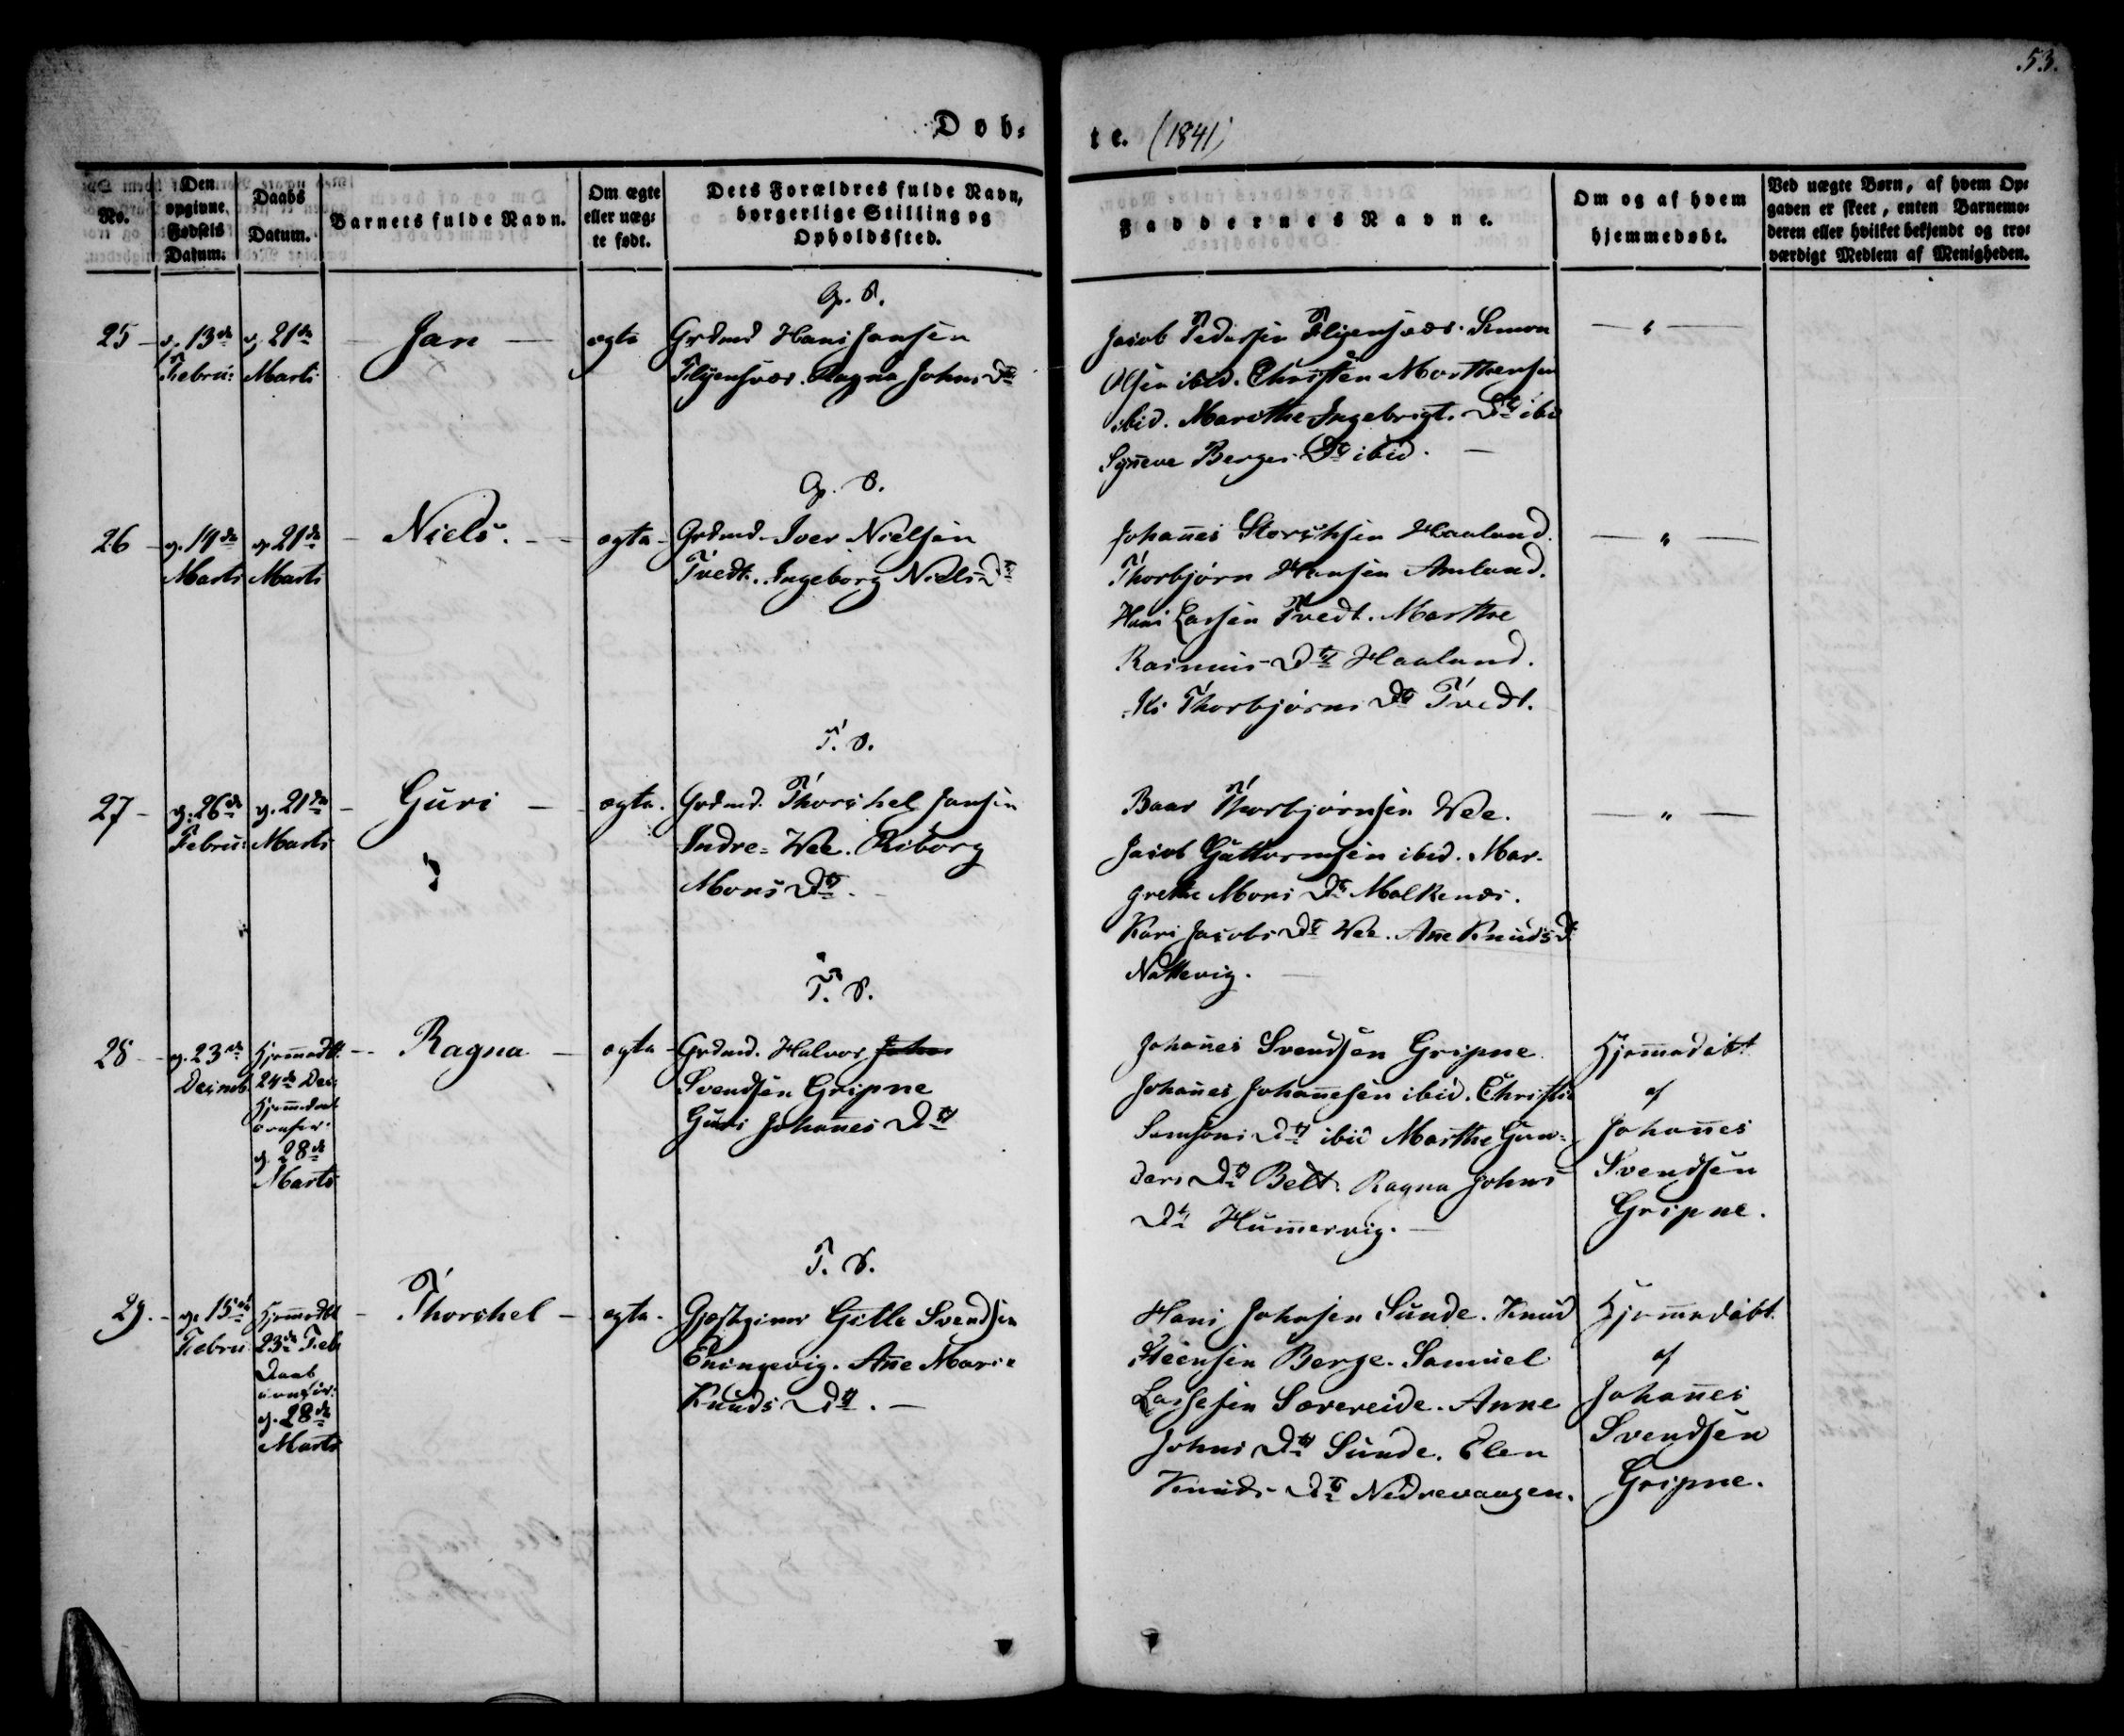 53.
Døb-
te. (1841)
No.
Den opgivne Fødsels Datum.
Daabs Datum.
Barnets fulde Navn.
Om ægte eller uægte født.
Dets Forældres fulde Navn, borgerlige Stilling og Opholdssted.
Faddernes Navne.
Om og af hvem hjemmedøbt.
Ved uægte Børn, af hvem Opgaven er skeet, enten Barnemoderen eller hvilket bekjendt og troværdigt Medlem af Menigheden.
25 - d. 13de Febru: d. 21de Marti - Jan - ægte
Grdmd Hans Jansen
Ragna Johns Dtr
Jacob Pedersen Simon
Olsen ibid. Christen Morthensen
ibid. Marethe Ingebrigt. Dtr ibid
Syneve Berges Dtr ibid. -
26 - d. 14de Marts d. 21de Marts - Niels. - ægte -
Grdmd. Iver Nielsen
Tvedt. Ingeborg Niels Dtr
Johanes Haaland.
Thorbjørn Hansen Amland.
Hans Larsen Tvedt. Marthe
Rasmus Dtr Haaland.
Thorbjørns Dtr Tvedt.
T. S.
27 - d. 26de Febru: d. 21de Marts - Guri - ægte.
Grdmd. Thorchel Jansen
Indre-Wee. Riborg
Mons Dtr. -
Baar Thorbjørnsen Wee.
Jacob Guttormsen ibid. Mar-
grethe Mons Dtr Malkenes.
Kari Jacobs Dtr Wee. Ane Knuds Dtr
Nattevig. -
T. S.
28 - d. 23de Decemb. Hjemmedbt. 24de Dec: d. 28de Marts - Ragna - ægte -
Grdmd. Halvor John
Svendsen Gripne
Guri Johanes Dtr
Johanes Svendsen Gripne.
Johanes Johanesen ibid. Christi
Samsons Dtr ibid Marthe Gun-
ders Dtr Belt. Ragna Johns
Dtr Humervig. -
Hjemmedøbt
af
Johanes
Svendsen
Gripne.
T. S.
29. - d. 15de Febru Hjemmedbt 23de Feb Daab d. 28de Marts - Thorchel - ægte.
Gjæstgiver Gitle Svendsen
Eningevig. Ane Marie
Knuds Dtr. -
Hans Johnsen Sunde. Knud
Steensen Berge. Samuel
Lassesen Sævereide. Anne
Johns Dtr Sunde. Elen
Knuds Dtr Nedrevaagen.
Hjemmedøbt
af
Johanes
Svendsen
Gripne.